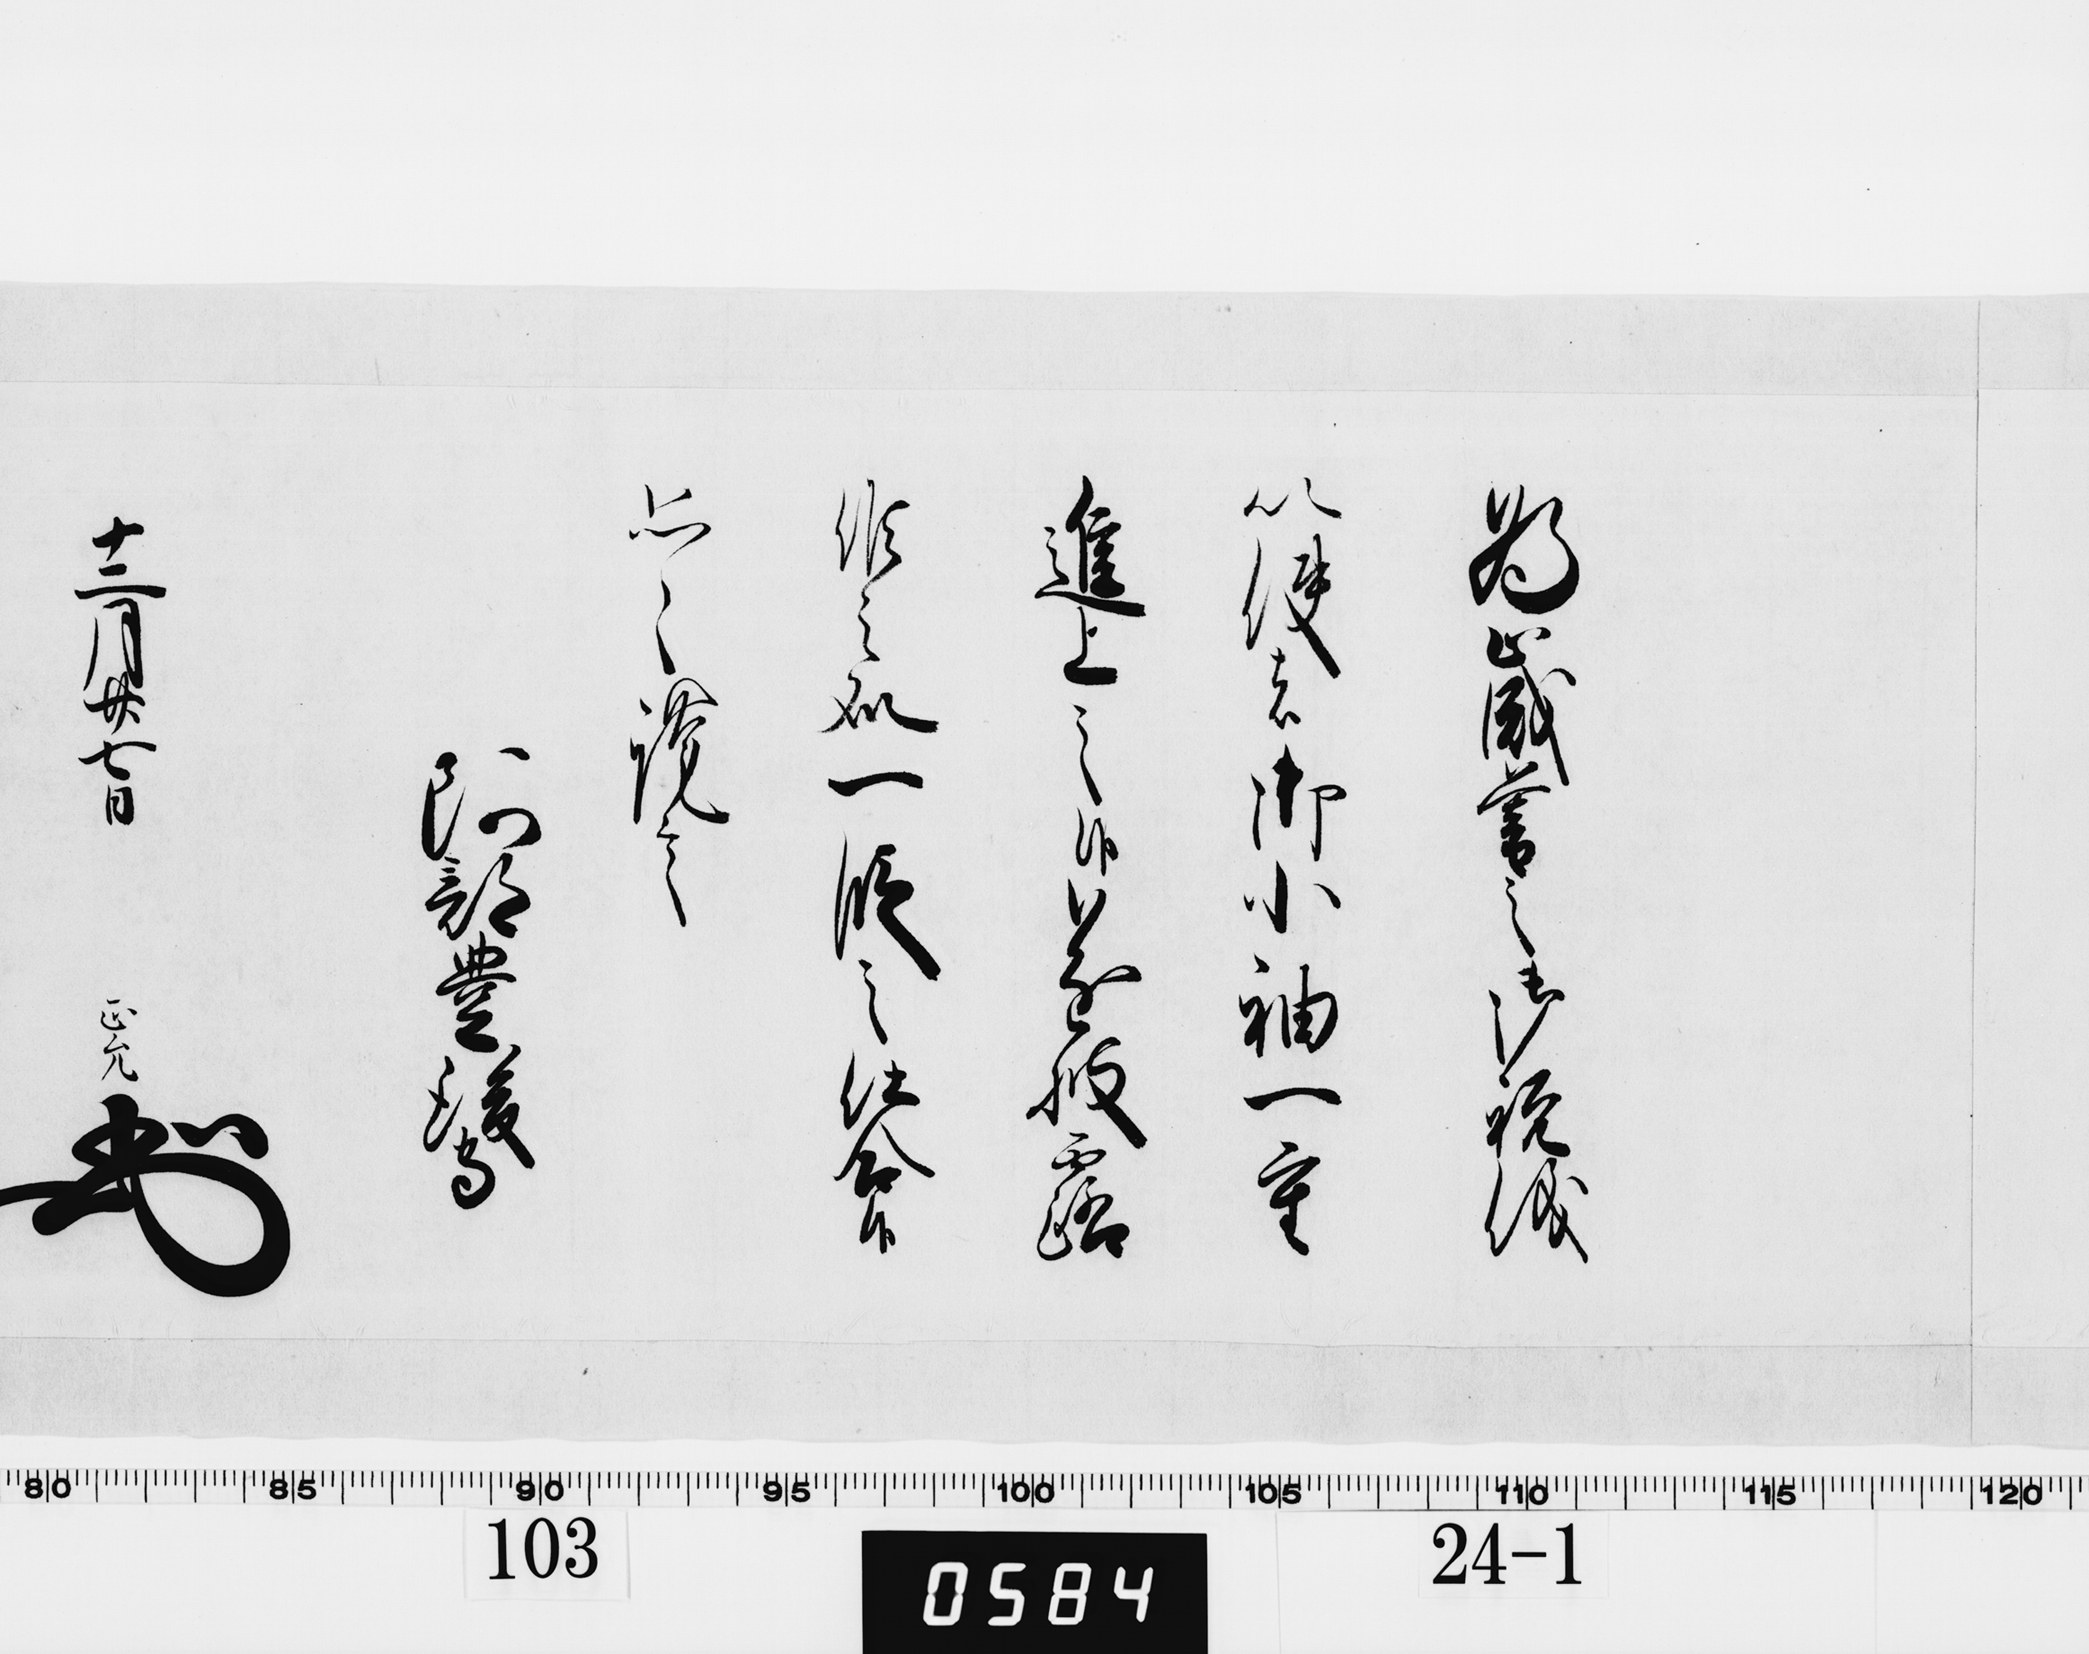 為歳暮之御祝儀
以使者御小袖一重
進上之候遂披露
候之処一段之仕合候
恐々謹言
阿部豊後守
十二月廿七日
正允
80 85 90 95 100 105 110 115 120
103
0584
24-1